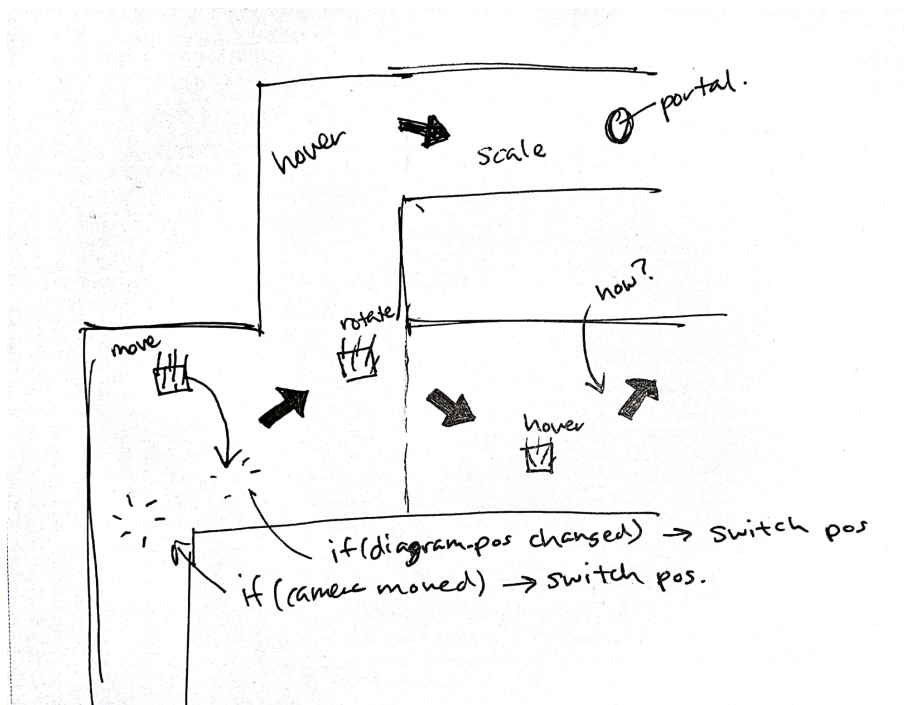 portal.
hover
scale
how?
rotate
move
hover
if(diagram.pos changed) → switch pos
if(camera moved) → switch pos.